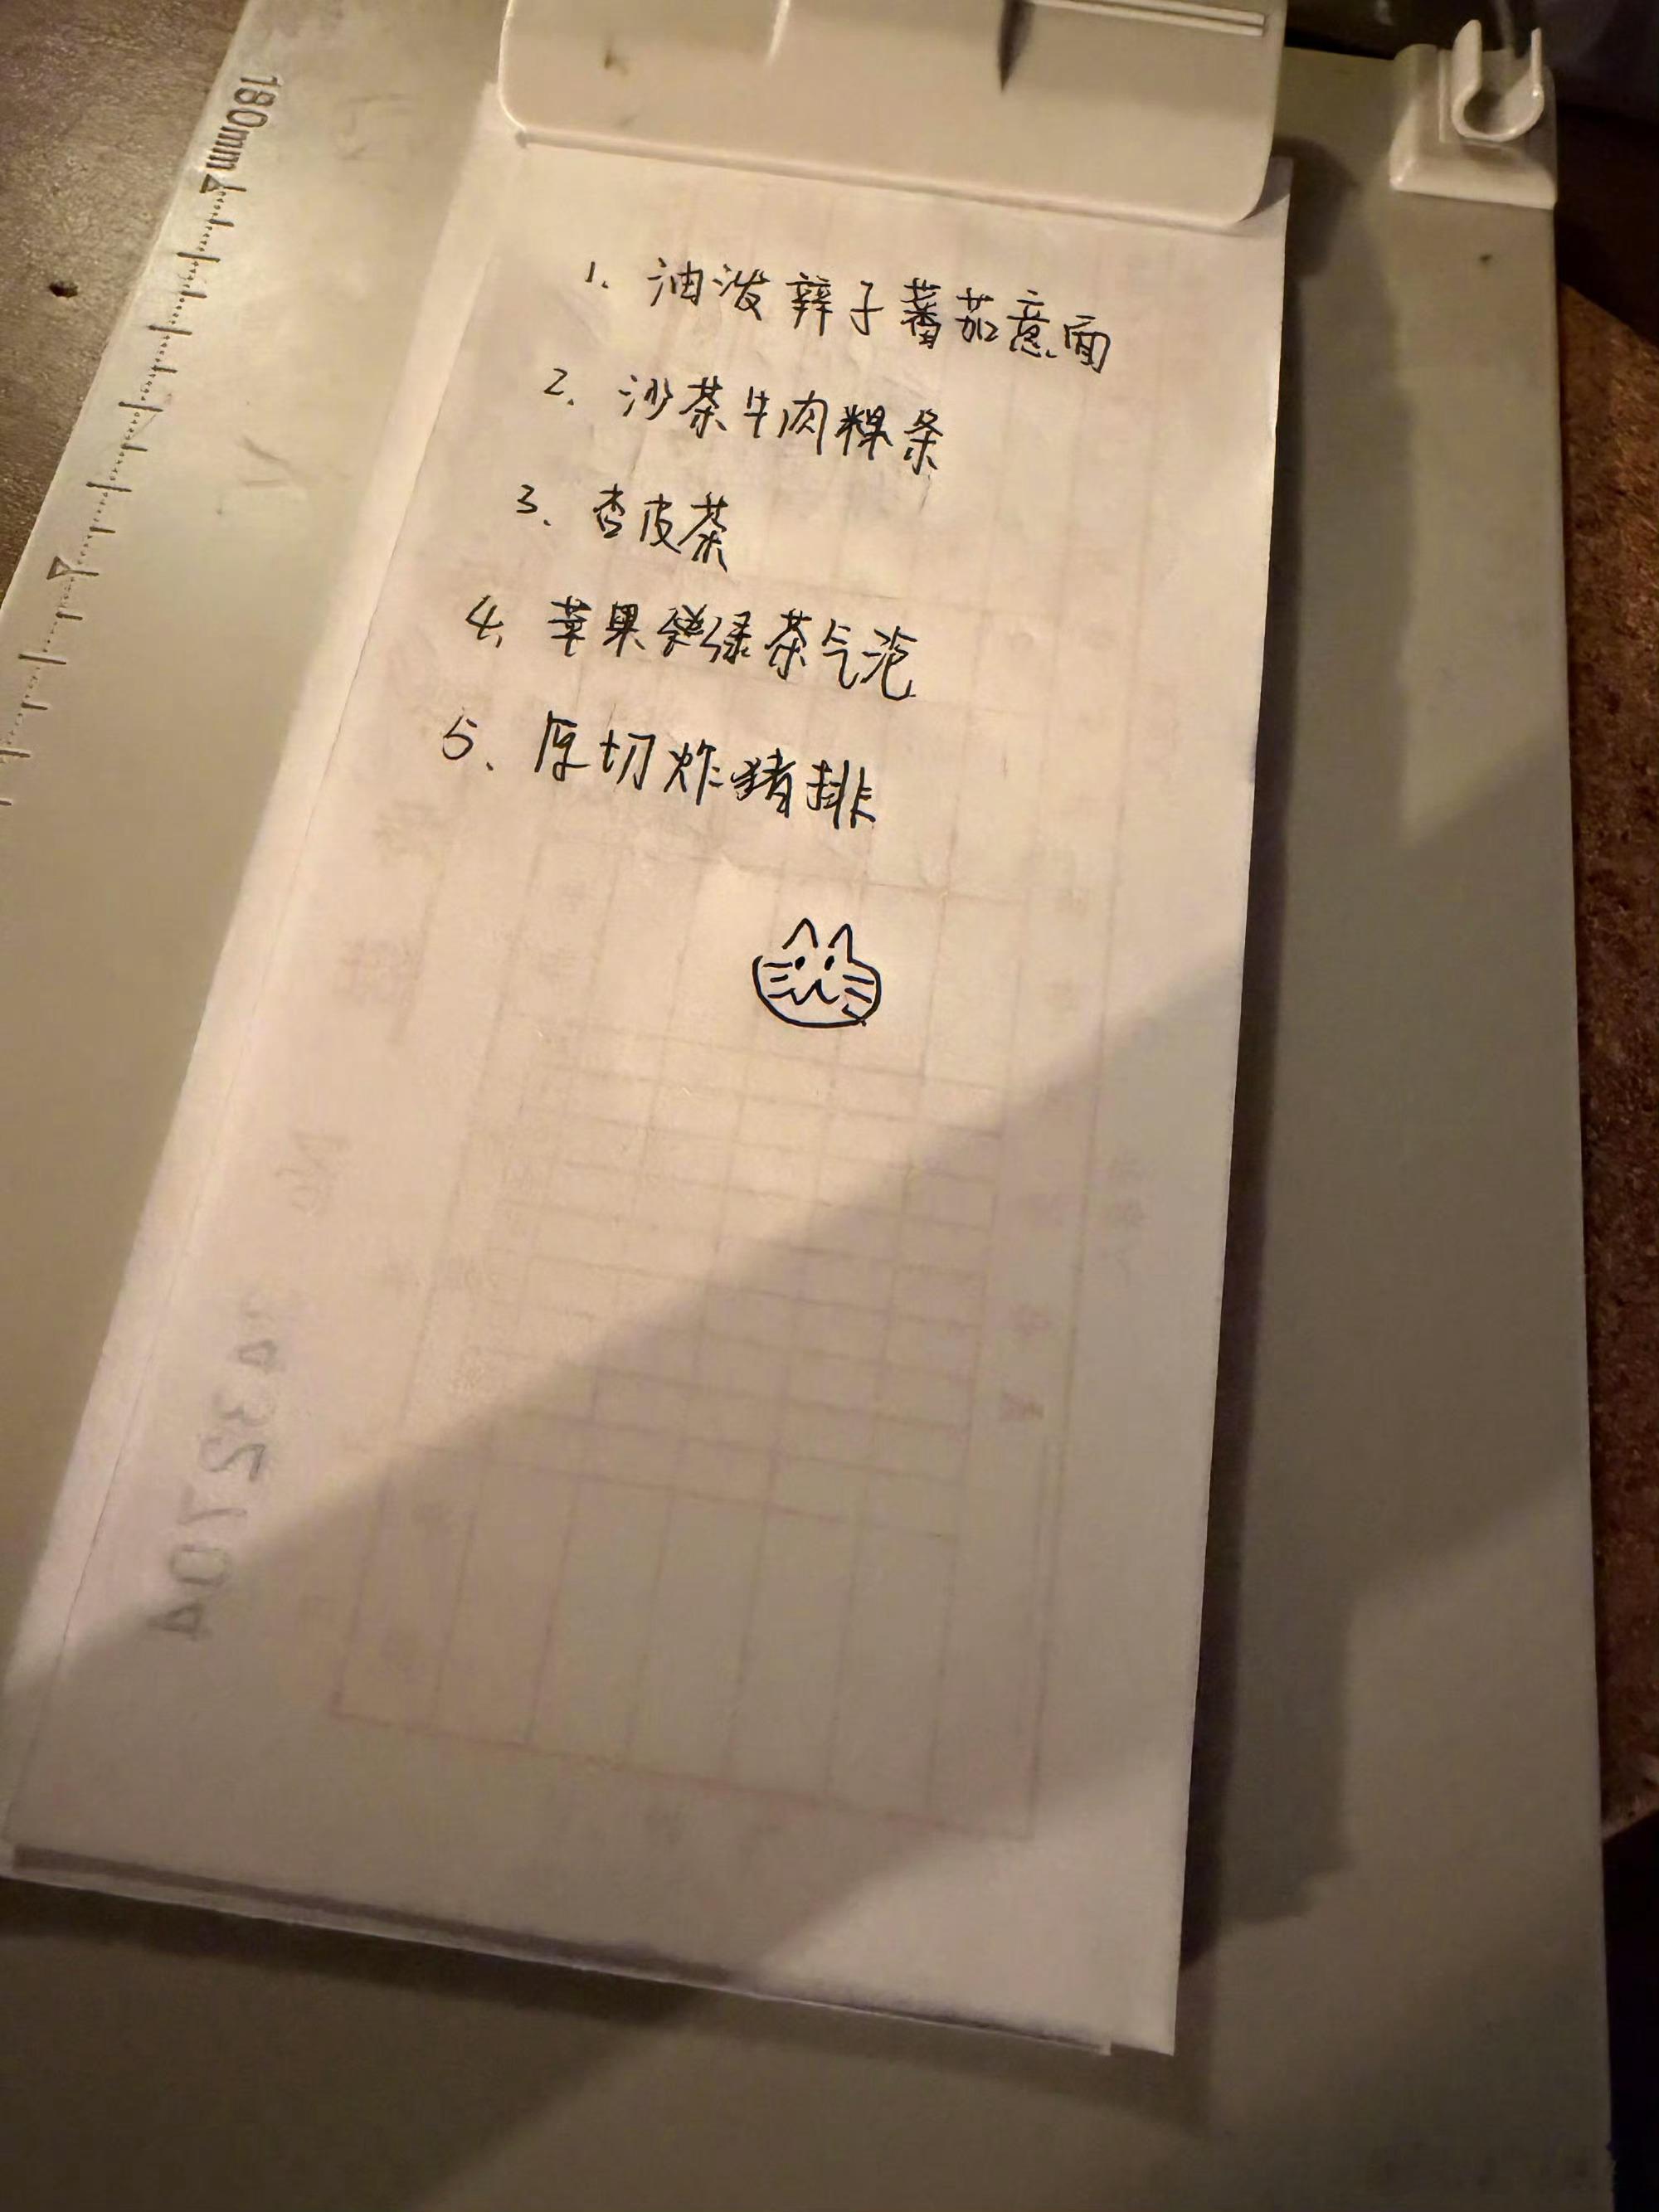 180mm
1. 油泼辣子蕃茄意面
2. 沙茶牛肉粿条
3. 杏皮茶
4. 苹果绿茶气泡
5. 厚切炸猪排